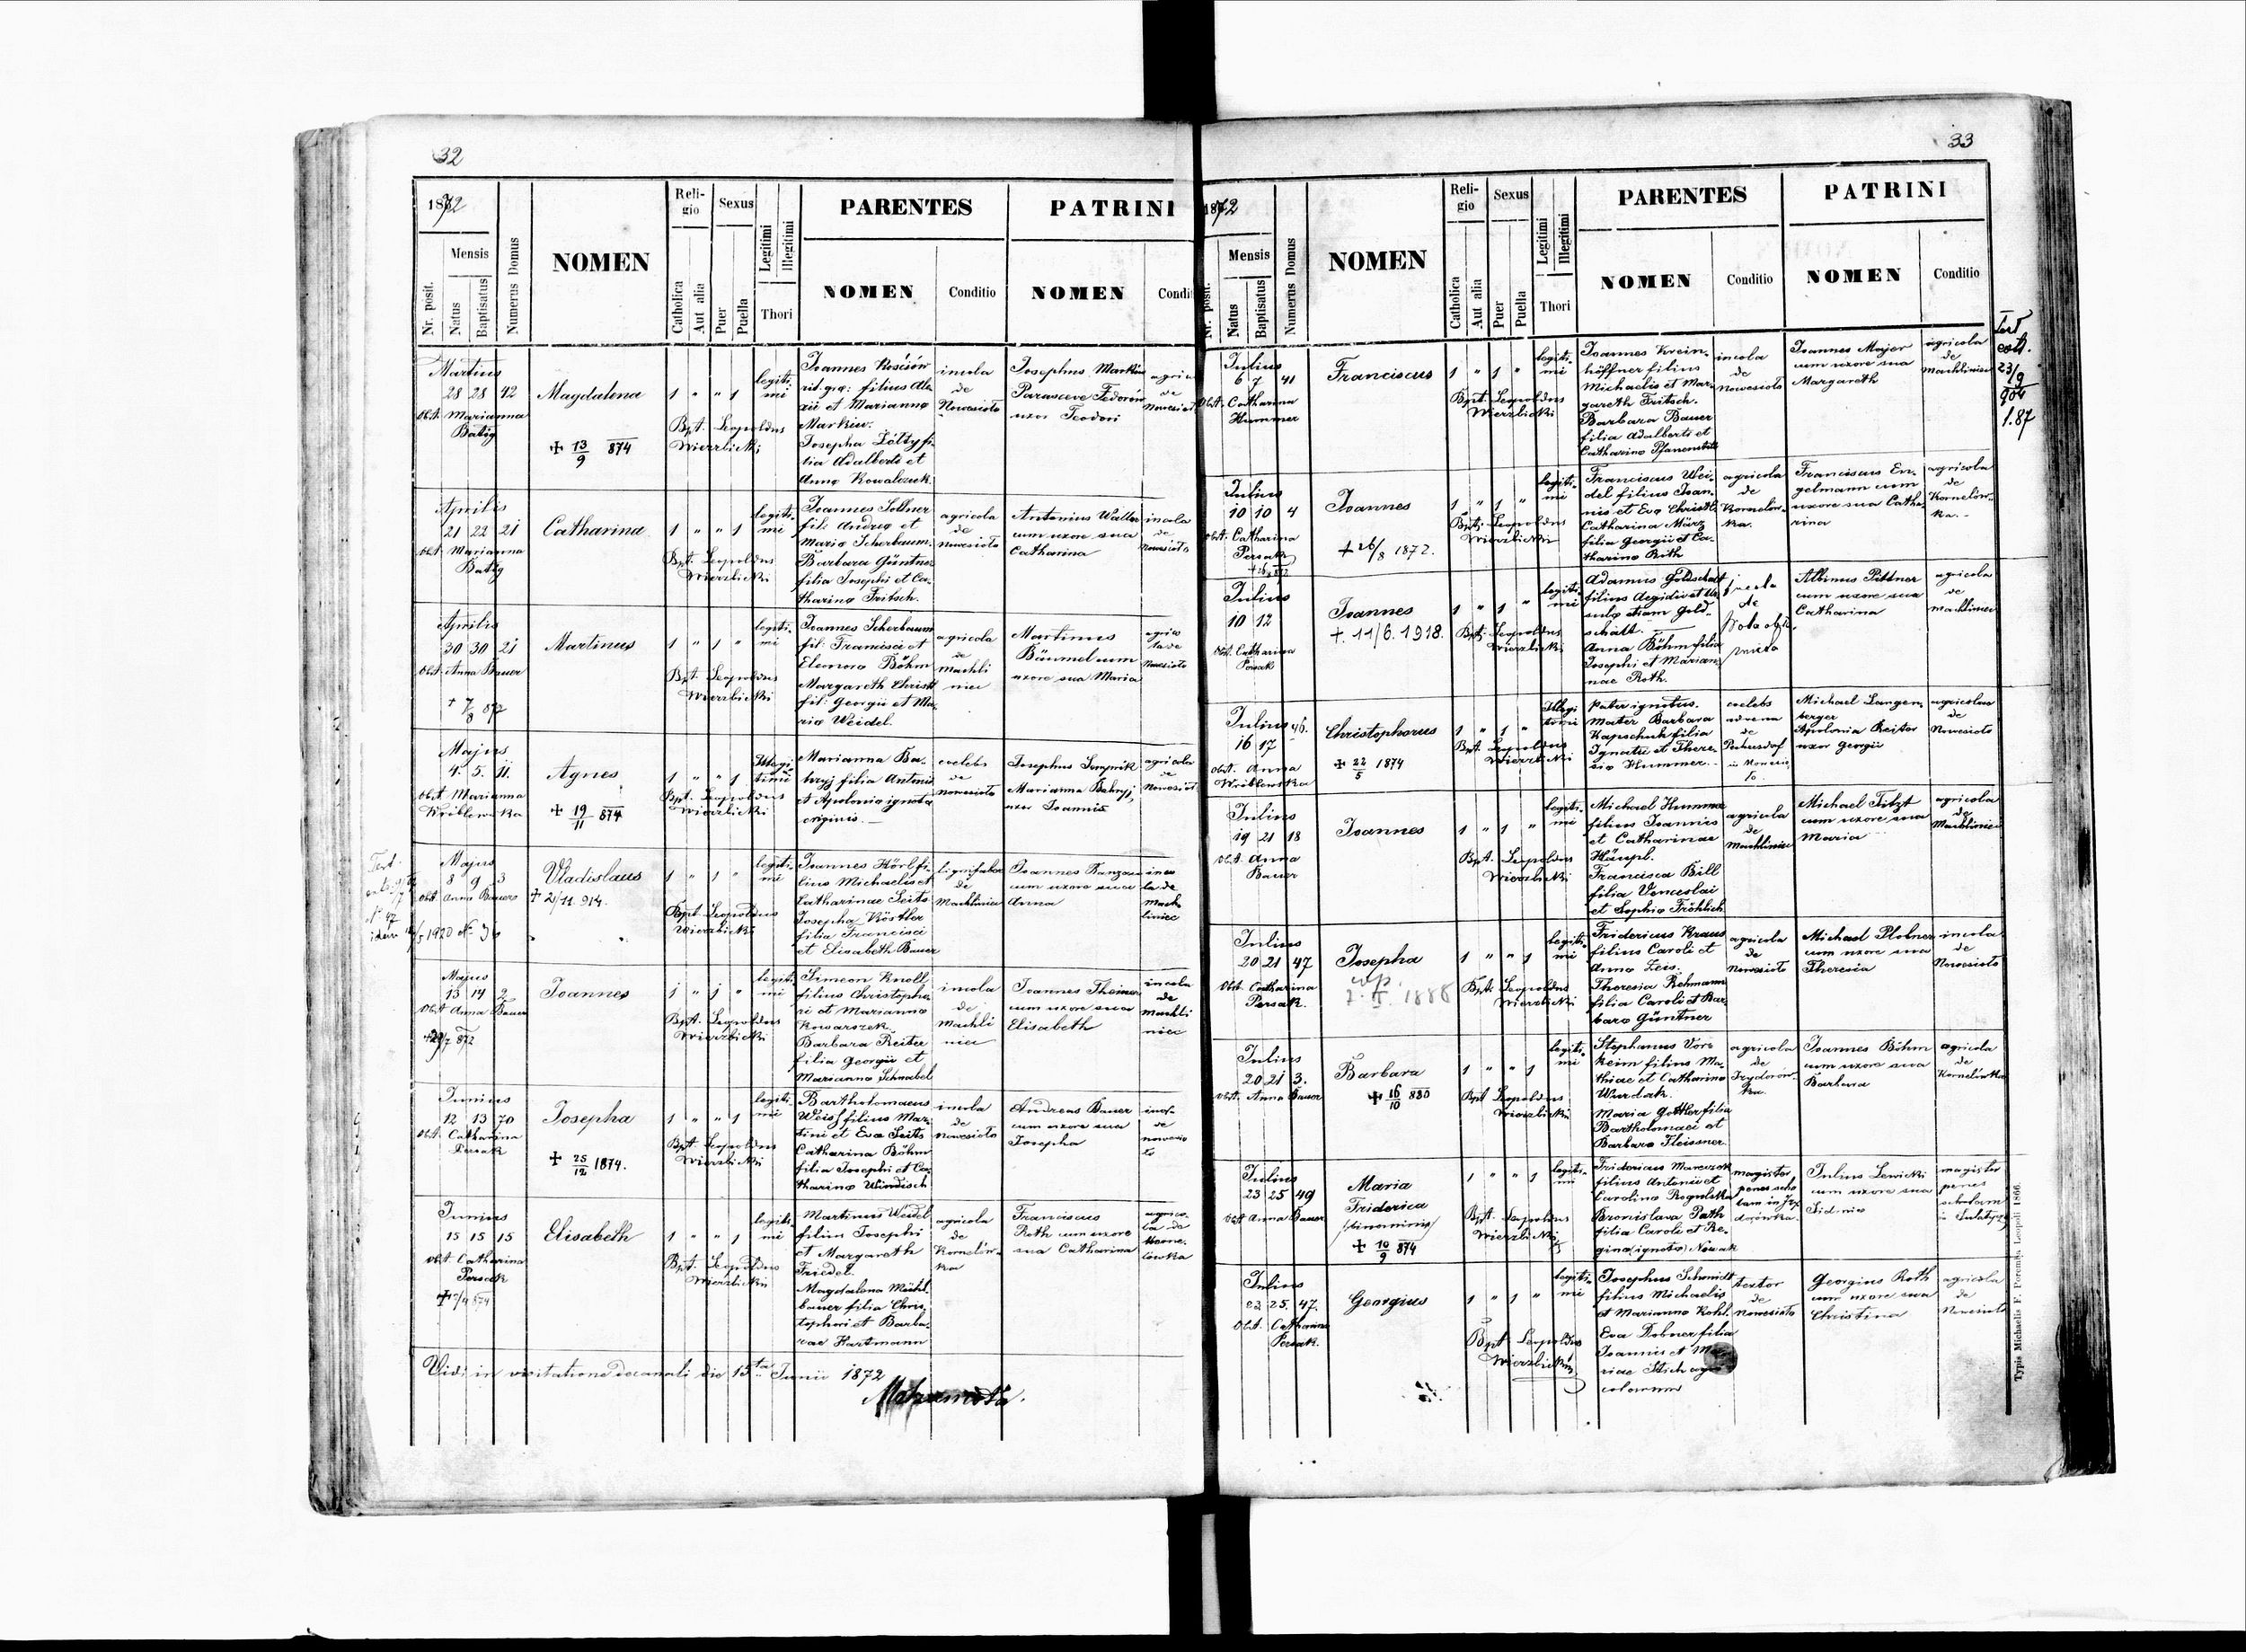 32
1872
Reli-
gio
Sexus
Legitimi
Illegitimi
PARENTES
PATRINI
Mensis
Nr. posit.
Natus
Baptisatus
Numerus Domus
NOMEN
Catholica
Aut alia
Puer
Puella
Thori
NOMEN
Conditio
NOMEN
Martius
28 28 42
Obst. Marianna
Batig
Magdalena
+ 13/9 874
1 " " 1
Bpt. Leopoldus
Wierzbicki
legiti-
mi
Joannes Kościów
rit. gr: filius Ale-
xii et Marianna
Markiw.
Josepha Żółty fi-
lia Adalberti et
Anna Kowalczuk.
incola
de
Nowesioło
Josephus Markiw
Parasceve Fedorów
uxor Teodori
Aprilis
21 22 21
Obst. Marianna
Batig
Catharina
1 " " 1
Bpt. Leopoldus
Wierzbicki
legiti-
mi
Joannes Sollner
fil. Andrea et
Maria Scherbaum.
Barbara Güntner
filia Josephi et Ca-
tharina Fritsch.
agricola
de
Nowesioło
Antonius Walter
cum uxore sua
Catharina
incola
de
Nowesioło
Aprilis
30 30 21
Obst. Anna Bauer
+ 7/8 872
Martinus
1 " 1 "
Bpt. Leopoldus
Wierzbicki
legiti-
mi
Joannes Scherbaum
fil. Francisci et
Elenora Böhm
Margareth Christl
fil. Georgii et Ma-
ria Weidel.
agricola
de
Machli
niec
Martinus
Bäumel cum
uxore sua Maria
Majus
4. 5. 11.
Obst. Marianna
Wróblewska
Agnes
+ 19/11 874
1 " " 1
Bpt. Leopoldus
Wierzbicki
Illegi-
timi
Marianna Ba-
filia Antonii
et Apolonia ignota
originis.
coelebs
de
Nowesioło
Josephus
Marianna
uxor Joannis
agricola
de
Majus
8 9 3
Obst. Anna Bauer
1920 N. 36
Vladislaus
+ 2/11. 914.
1 " 1 "
Bpt. Leopoldus
Wierzbicki
legiti-
mi
Joannes Hörl fi-
lius Michaelis et
Catharinae Seits
Josepha Köstler
filia Francisci
et Elisabeth Bauer
lignifaber
de
Machliniec
Joannes
cum uxore sua
Anna
inco
la de
Mach
liniec
Majus
13 14 2
Obst. Anna Bauer
Joannes
1 " 1 "
Bpt. Leopoldus
Wierzbicki
legiti-
mi
Simeon Knoll
filius Christopho-
ri et Marianna
Kowarszek.
Barbara Reiter
filia Georgii et
Marianna Schnabel
incola
de
Machli
niec
Joannes Theiner
cum uxore sua
Elisabeth
incola
de
Machli
niec
Junius
12 13 70
Obst. Catharina
Persak
Josepha
+ 25/12 1874.
1 " " 1
Bpt. Leopoldus
Wierzbicki
legiti-
mi
Bartholomaeus
Weiss filius Mar-
tini et Eva Seits
Catharina Böhm
filia Josephi et Ca-
tharina Windisch
incola
de
Nowesioło
Andreas Bauer
cum uxore sua
Josepha
Junius
15 15 15
Obst. Catharina
Persak
Elisabeth
1 " " 1
Bpt. Leopoldus
Wierzbicki
legiti-
mi
Martinus Weidel
filius Josephi
et Margareth
Friedel.
Magdalena Mühl-
bauer filia Chris-
tophori et Barba-
rae Hartmann
agricola
de
Kornelów-
ka
Franciscus
Roth cum uxore
sua Catharina
agrico-
la de
Korne-
lówka
Vidi in visitatione decanali die 15ta Junii 1872
33
1872
Reli-
gio
Sexus
Legitimi
Illegitimi
PARENTES
PATRINI
Mensis
Nr. posit.
Natus
Baptisatus
Numerus Domus
NOMEN
Catholica
Aut alia
Puer
Puella
Thori
NOMEN
Conditio
NOMEN
Conditio
Julius
6 7 41
Obst. Catharina
Hummer
Franciscus
1 " 1 "
Bpt. Leopoldus
Wierzbicki
legiti-
mi
Joannes Krein-
höffner filius
Michaelis et Mar-
gareth Fritsch.
Barbara Bauer
filia Adalberti et
Catharina
incola
de
Nowesioło
Joannes Majer
cum uxore sua
Margareth
agricola
de
Machliniec
23/9
904
1.87
Julius
10 10 4
Obst. Catharina
Persak
Joannes
+ 26/8 1872.
1 " 1 "
Bpt. Leopoldus
Wierzbicki
legiti-
mi
Franciscus Wei-
del filius Joan-
nis et Eva Christl
Catharina März
filia Georgii et Ca-
tharina Roth
agricola
de
Kornelów-
ka.
Franciscus En-
gelmann cum
uxore sua Catha-
rina
agricola
de
Kornelów-
ka.
Julius
10 12
Obst. Catharina
Persak
Joannes
+. 11/6. 1918.
1 " 1 "
Bpt. Leopoldus
Wierzbicki
legiti-
mi
Adamus Goldschalt
filius Aegidii et
Gold-
schalt.
Anna Böhm filia
Josephi et Marian-
nae Roth.
incola
de
Albinus Pittner
cum uxore sua
Catharina
agricola
de
Machliniec
Julius 46.
16 17
Obst. Anna
Wróblewska
Christophorus
+ 22/5 1874
1 " 1 "
Bpt. Leopoldus
Wierzbicki
Illegi
timi
Pater ignotus.
Mater Barbara
Kapschuh filia
Ignatii et There-
sia Hummer.
coelebs
advena
de
Michael Langen-
berger
Apolonia Reiter
uxor Georgii
agricola
de
Nowesioło
Julius
19 21 18
Obst. Anna
Bauer
Joannes
1 " 1 "
Bpt. Leopoldus
Wierzbicki
legiti-
mi
Michael Hummer
filius Joannis
et Catharinae
Häupl.
Francisca Bill
filia Venceslai
et Sophia Fröhlich
agricola
de
Machliniec
Michael Titzt
cum uxore sua
Maria
agricola
de
Machliniec
Julius
20 21 47
Obst. Catharina
Persak.
Josepha
1888
1 " " 1
Bpt. Leopoldus
Wierzbicki
legiti-
mi
Fridericus Kraus
filius Caroli et
Anna Zeis.
Theresia Rehmann
filia Caroli et Bar-
bara Güntner
agricola
de
Nowesioło
Michael Plobner
cum uxore sua
Theresia
incola
de
Nowesioło
Julius
20 21 3.
Obst. Anna Bauer
Barbara
+ 16/10 880
1 " " 1
Bpt. Leopoldus
Wierzbicki
legiti-
mi
Stephanus Vor-
keim filius Ma-
thiae et Catharina
Wurdak.
Maria Gottler filia
Bartholomaei et
Barbara Fleissner.
agricola
de
Izydorów-
ka.
Joannes Böhm
cum uxore sua
Barbara
agricola
de
Kornelówka
Julius
23 25 49
Obst. Anna Bauer
Maria
Friderica
/binominis/
+ 10/9 874
1 " " 1
Bpt. Leopoldus
Wierzbicki
legiti-
mi
Fridericus Marczok
filius Antonii et
Carolina Rogulska
Bronislava Path
filia Caroli et Re-
gina (ignota) Nowak
magister
penes scho-
lam in Izy-
dorówka.
Julius Lewicki
cum uxore sua
Sidonia
magister
penes
scholam
Julius
22 25. 47.
Obst. Catharina
Persak.
Georgius
1 " 1 "
Bpt. Leopoldus
Wierzbicki
legiti-
mi
Josephus Schmidt
filius Michaelis
et Marianna Kohl.
Eva Dobner filia
Joannis et Ma-
riae
textor
de
Nowesioło
Georgius Roth
cum uxore sua
Christina
agricola
de
Nowesioło
Typis Michaelis F. Poremba Leopoli 1866.